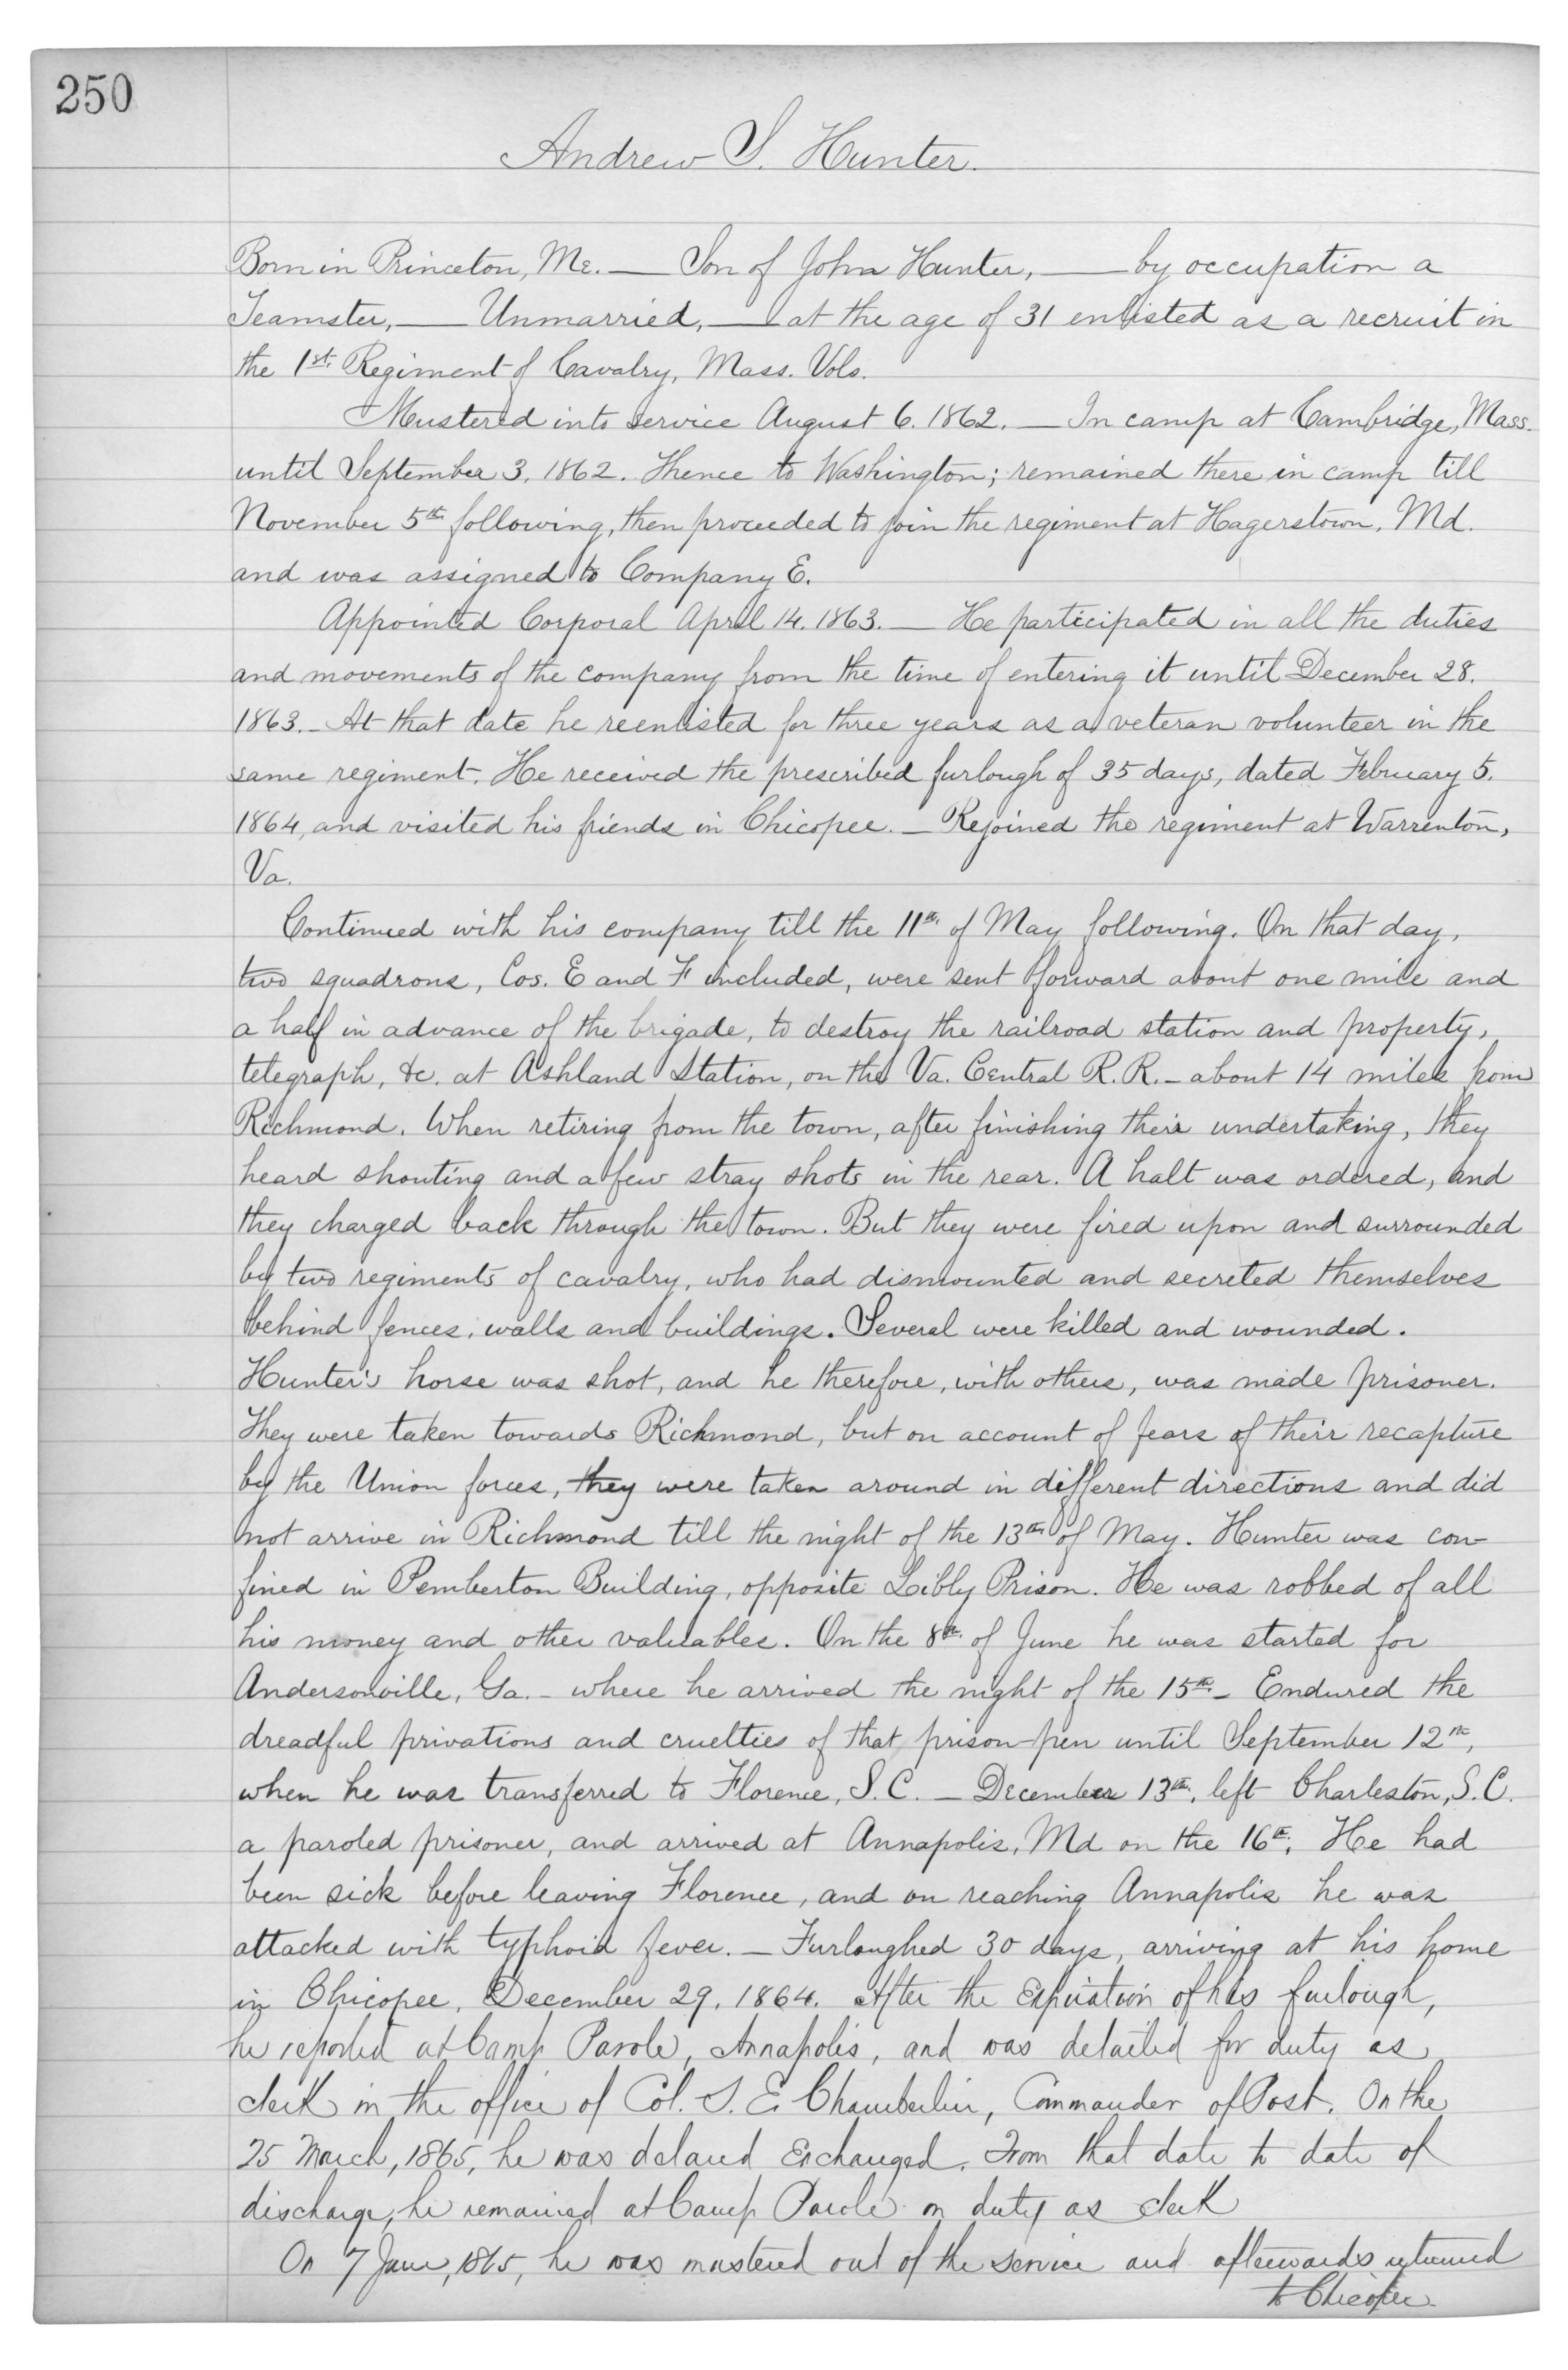 250
Andrew S. Hunter.
Born in Princeton, Me. — Son of John Hunter, — by occupation a
Teamster, — Unmarried, — at the age of 31 enlisted as a recruit in
the 1st. Regiment of Cavalry, Mass. Vols.
Mustered into service August 6. 1862. — In camp at Cambridge, Mass.
until September 3, 1862. Thence to Washington; remained there in camp till
November 5th following, then proceeded to join the regiment at Hagerstown, Md.
and was assigned to Company E.
Appointed Corporal April 14. 1863. — He participated in all the duties
and movements of the company from the time of entering it until December 28.
1863. – At that date he reenlisted for three years as a veteran volunteer in the
same regiment. He received the prescribed furlough of 35 days, dated February 5.
1864, and visited his friends in Chicopee. – Rejoined the regiment at Warrenton,
Va.
Continued with his company till the 11th. of May following. On that day,
two squadrons, Cos. E and F included, were sent forward about one mile and
a half in advance of the brigade, to destroy the railroad station and property,
telegraph, &c. at Ashland Station, on the Va. Central R.R. – about 14 miles from
Richmond. When retiring from the town, after finishing their undertaking, they
heard shouting and a few stray shots in the rear. A halt was ordered, and
they charged back through the town. But they were fired upon and surrounded
by two regiments of cavalry, who had dismounted and secreted themselves
behind fences, walls and buildings. Several were killed and wounded.
Hunter's horse was shot, and he therefore, with others, was made prisoner.
They were taken towards Richmond, but on account of fears of their recapture
by the Union forces, they were taken around in different directions and did
not arrive in Richmond till the night of the 13th. of May. Hunter was con-
fined in Pemberton Building, opposite Libby Prison. He was robbed of all
his money and other valuables. On the 8th. of June he was started for
Andersonville, Ga. – where he arrived the night of the 15th. – Endured the
dreadful privations and cruelties of that prison-pen until September 12th,
when he was transferred to Florence, S.C. – December 13th, left Charleston, S.C.
a paroled prisoner, and arrived at Annapolis, Md on the 16th. He had
been sick before leaving Florence, and on reaching Annapolis he was
attacked with typhoid fever. – Furloughed 30 days, arriving at his home
in Chicopee, December 29, 1864. After the Expiration of his furlough,
he reported at Camp Parole, Annapolis, and was detailed for duty as
clerk in the office of Col. S. E. Chamberlin, Commander of Post. On the
25 March, 1865, he was delared Exchanged. From that date to date of
discharge, he remained at Camp Parole on duty as clerk
On 7 June, 1865, he was mustered out of the service and afterwards returned
to Chicopee.